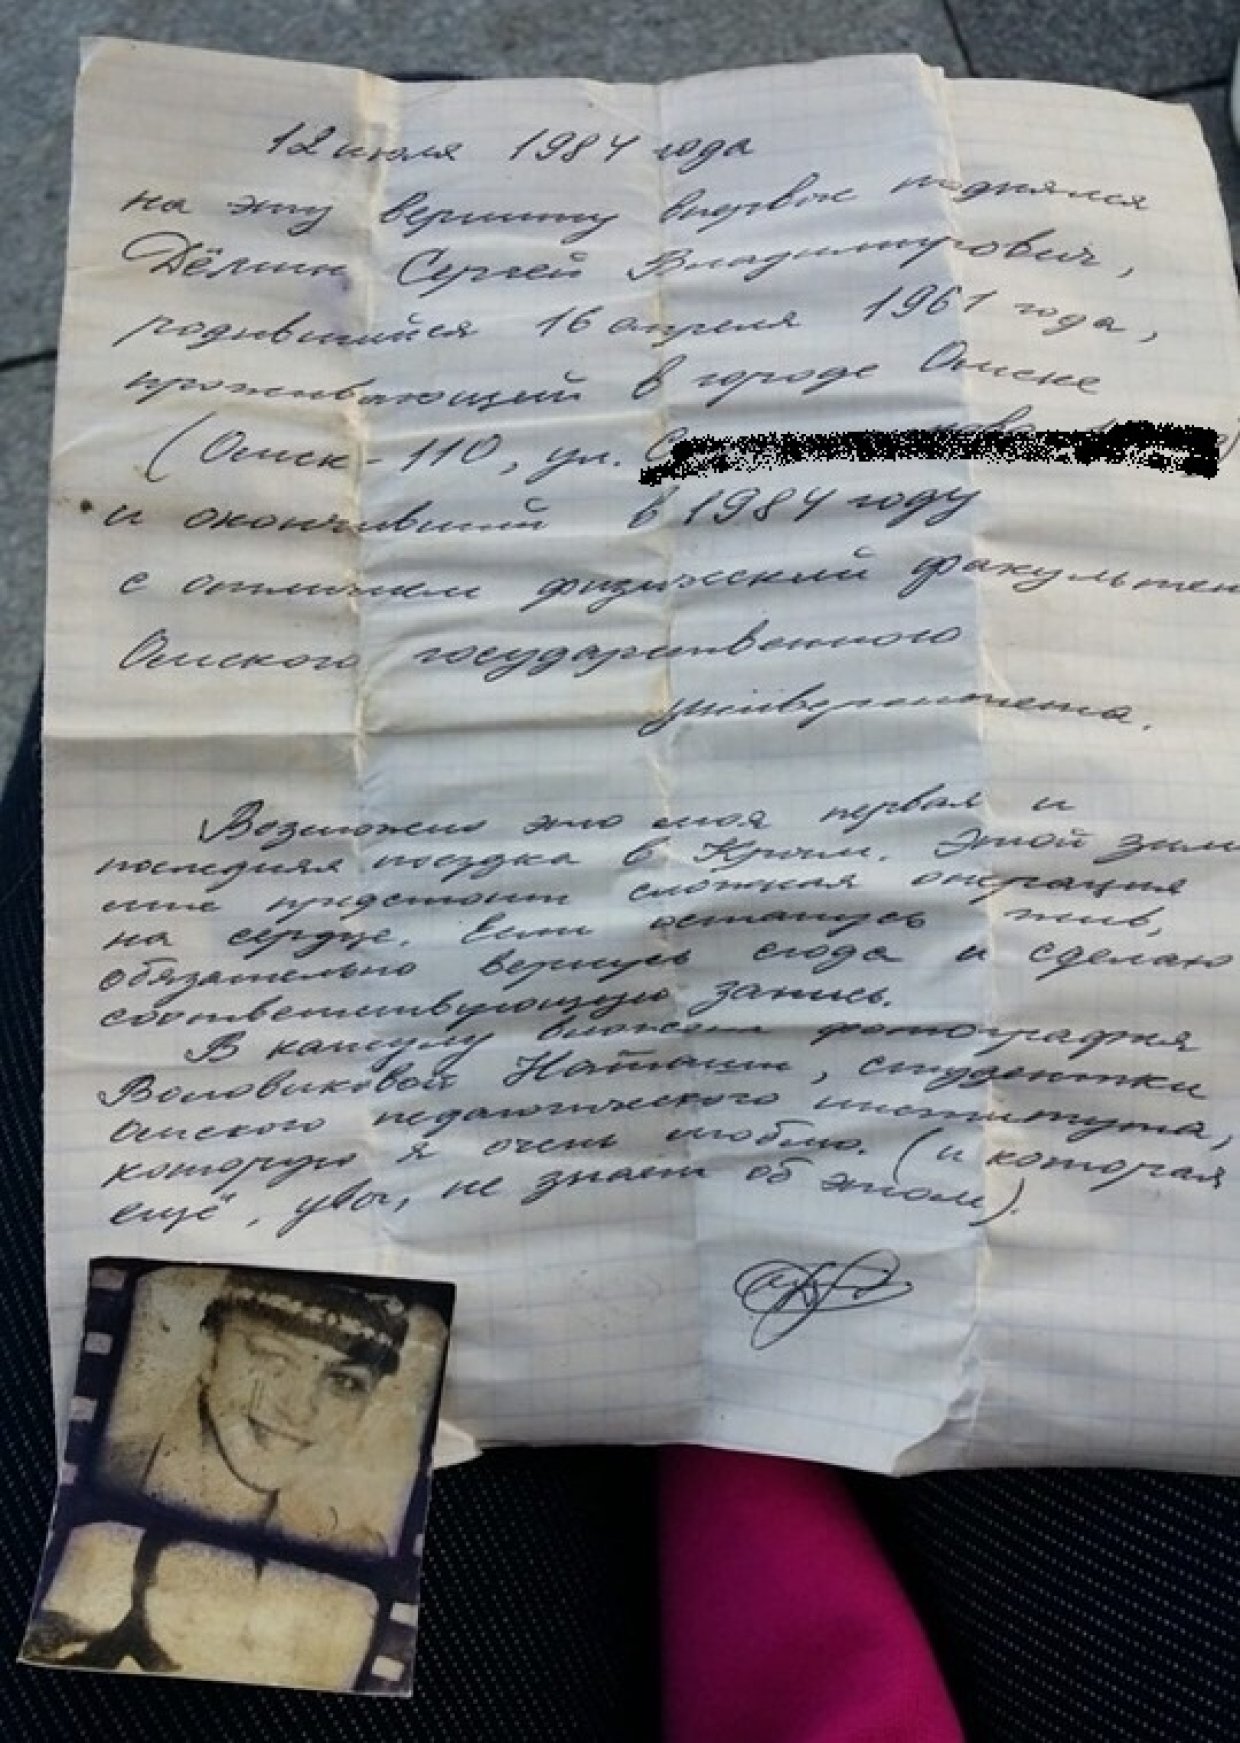 12 июля 1984 года
на эту вершину впервые поднялся
Дёмин Сергей Владимирович,
родившийся 16 апреля 1961 года,
проживающий в городе Омске
(Омск-110, ул.
и окончивший в 1984 году
с отличием физический факультет
Омского государственного
университета.
Возможно это моя первая и
последняя поездка в Крым. Этой зимой
мне предстоит сложная операция
на сердце. Если останусь жив,
обязательно вернусь сюда и сделаю
соответствующую запись.
В капсулу вложена фотография
Воловиковой Наташи, студентки
Омского педагогического института,
которую я очень люблю. (и которая
ещё, увы, не знает об этом).